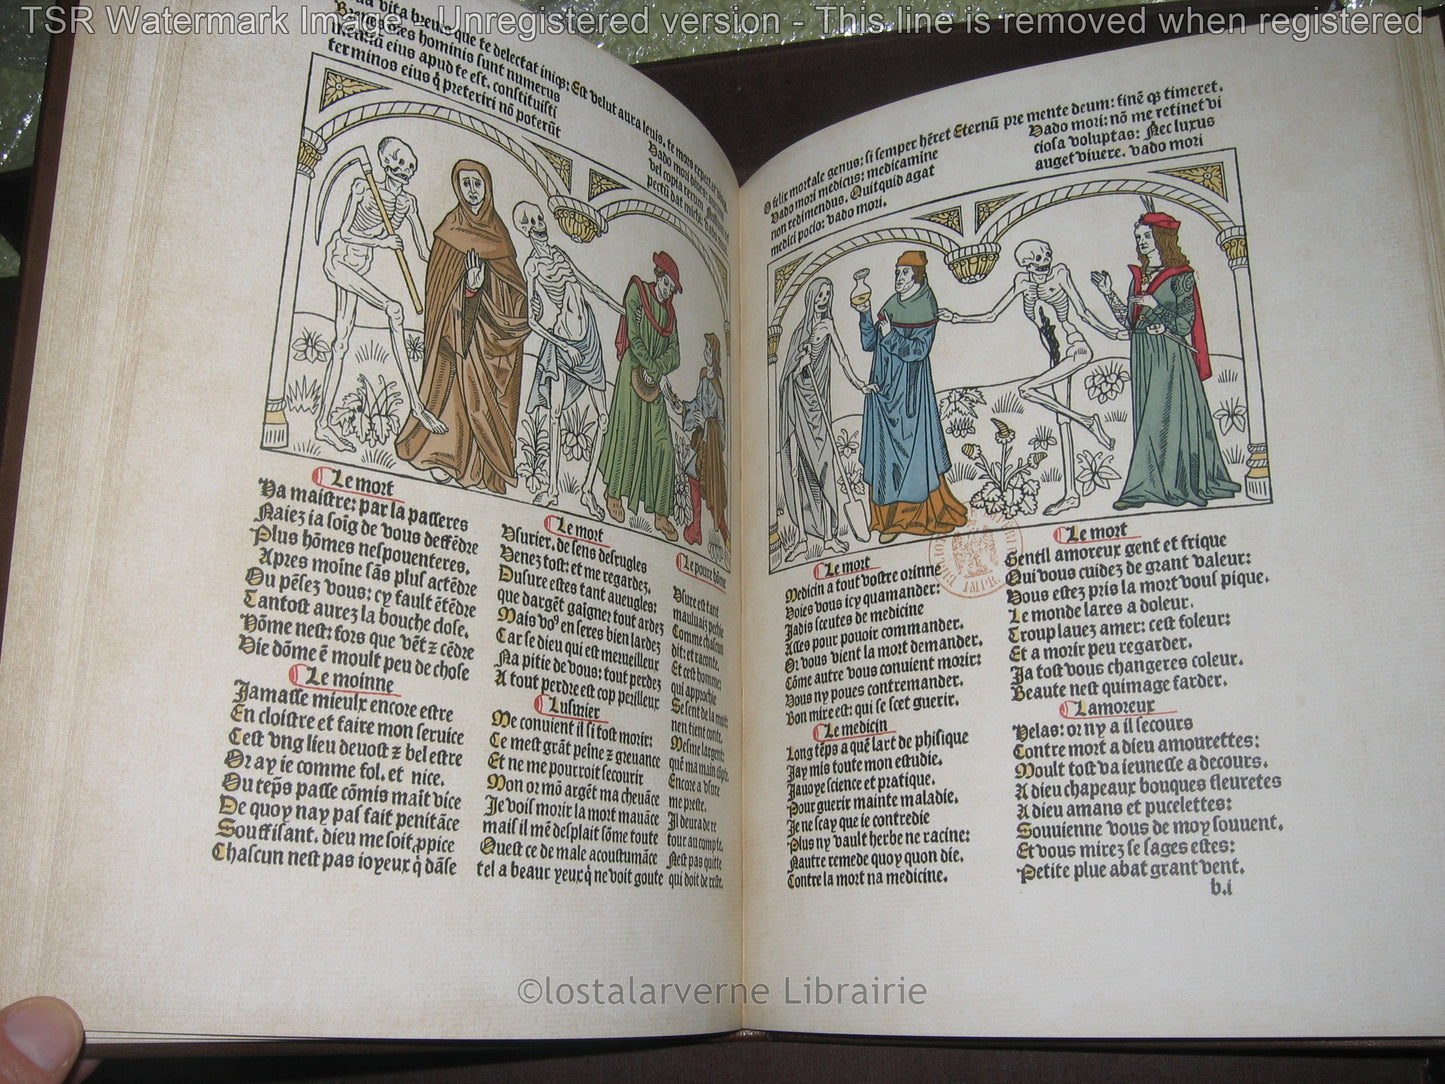 TSR Watermark Image - Unregistered version - This line is removed when registered
vita breuis que te delectat iniqs: Est velut aura leuis. te mors expectat
Breues dies hominis sunt numerus
mensiū eius apud te est. constituisti
terminos eius q̄ preteriri nō poterūt
Vado mori
vel copia rerum
Le mort
Ha maistre: par la passeres
Naiez ia soīg de vous deffēdre
Plus hōmes nespouenteres.
Apres moine sās plus actēdre
Ou pēsez vous: cy fault ētēdre
Tantost aurez la bouche close.
Hōme nest: fors que vēt z cēdre
Vie dōme ē moult peu de chose
Le moinne
Jamasse mieulx encore estre
En cloistre et faire mon seruice
Cest vng lieu deuost z bel estre
Or ay ie comme fol. et nice.
Ou tēps passe cōmis maīt vice
De quoy nay pas fait penitāce
Souffisant. dieu me soit ꝓpice
Chascun nest pas ioyeux q̄ dāse
Le mort
Vsurier. de sens desrugles
Venez tost: et me regardez.
Dusure estes tant aueugles:
que dargēt gaigner tout ardez
Mais vo⁹ en seres bien lardez
Car se dieu qui est merueilleux
Na pitie de vous: tout perdez
A tout perdre est cop perilleux
Lusurier
Me conuient il si tost morir:
Ce mest grāt peine z greuance
Et ne me pourroit secourir
Mon or mō argēt ma cheuāce
Je vois morir la mort mauāce
mais il mē desplait sōme toute
Quest ce de male acoustumāce
tel a beaux yeux q̄ ne voit goute
Le poure hōme
Vsure est tant
mauluaiz pechie
Comme chascun
dit: et raconte.
Et cest homme:
qui approchie
Se sent de la mort:
nen tient conte.
Mesme largent:
quē ma main cōpte
Encore a vsure
me preste.
Il deura de re
tour au compte.
Nest pas quitte
qui doit de reste.
O felix mortale genus: si semper hēret Eternū pre mente deum: finē qs timeret.
Vado mori medicus: medicamine
non redimendus. Quitquid agat
medici pocio: vado mori.
Vado mori: nō me retinet vi
ciosa voluptas: Nec luxus
auget viuere. vado mori
Le mort
Medicin a tout vostre orinne
Voies vous icy quamander:
Jadis sceutes de medicine
Asses pour pouoir commander.
Or vous vient la mort demander.
Cōme autre vous conuient morir:
Vous ny poues contremander.
Bon mire est: qui se scet guerir.
Le medicin
Long tēps a quē lart de phisique
Jay mis toute mon estudie.
Jauoye science et pratique.
Pour guerir mainte maladie.
Je ne scay que ie contredie
Plus ny vault herbe ne racine:
Nautre remede quoy quon die.
Contre la mort na medicine.
Le mort
Gentil amoreux gent et frique
Qui vous cuidez de grant valeur:
Vous estez pris la mort vous pique.
Le monde lares a doleur.
Troup lauez amer: cest foleur:
Et a morir peu regarder.
Ja tost vous changeres coleur.
Beaute nest quimage farder.
Lamoreux
Helas: or ny a il secours
Contre mort a dieu amourettes:
Moult tost va ieunesse a decours.
A dieu chapeaux bouques fleuretes
A dieu amans et pucelettes:
Souuienne vous de moy souuent.
Et vous mirez se sages estes:
Petite plue abat grant vent.
b.i
©lostalarverne Librairie